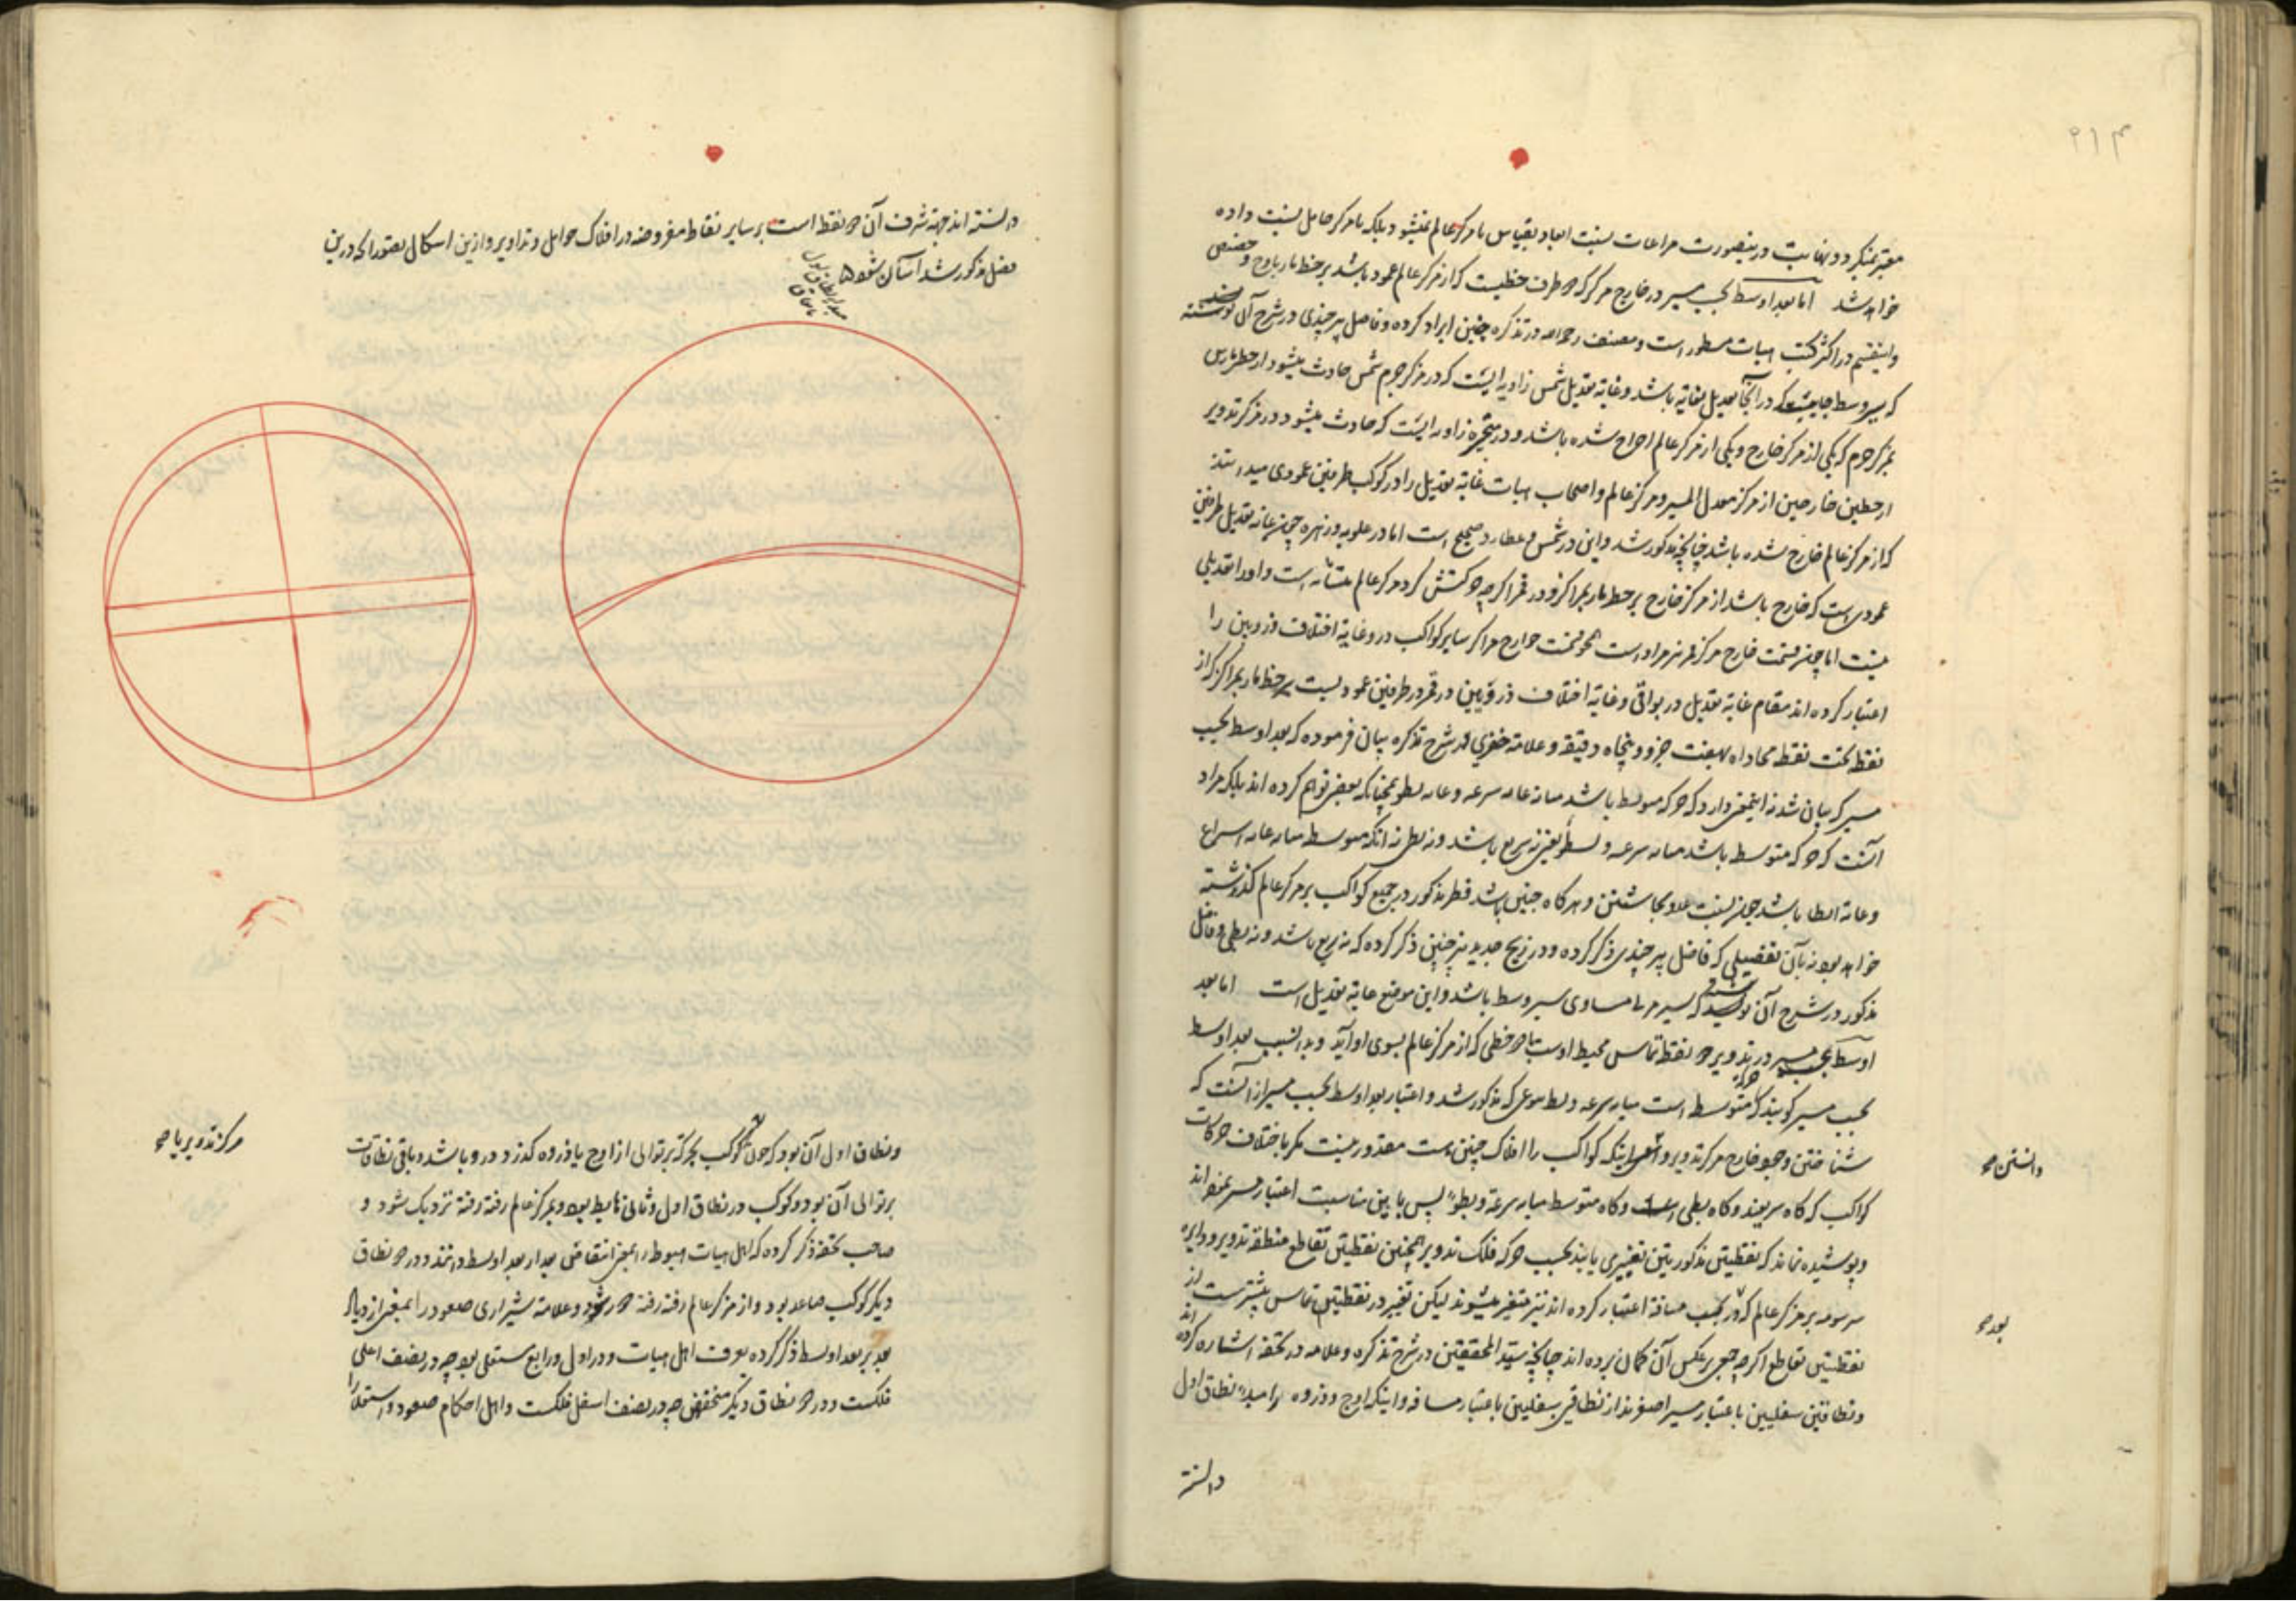 ۲۱۴
معتبر نمیگردد ونهایت درینصورت مراعات نسبت ابعاد بقیاس با مرکز عالم نمیشود بلکه با مرکز حامل نسبت داده
خواهد شد اما بعد اوسط بحسب مسیر در خارج مرکز که دو طرف خطیست که از مرکز عالم عمود باشد بر خط مار باوج وحضیض
واینقسم در اکثر کتب هیات مسطور است ومصنف رحمه الله در تذکره چنین ایراد کرده وفاضل بیرجندی در شرح آن نوشته
که سیر وسط جاییست که در آنجا تعدیل بغایة باشد وغایة تعدیل شمس زاویه ایست که در مرکز جرم شمس حادث میشود از خطین مارین
بمرکز جرم که یکی از مرکز خارج ویکی از مرکز عالم اخراج شده باشد ودر متحیره زاویه ایست که حادث میشود در مرکز تدویر
از خطین خارجین از مرکز معدل المسیر ومرکز عالم واصحاب هیات غایة تعدیل را در کوکب طرفین عمودی میدانند
که از مرکز عالم خارج شده باشد چنانچه مذکور شد واین در شمس وعطارد صحیح است اما در علویه وزهره چون غایة تعدیل طرفین
عمودی است که خارج باشد از مرکز خارج بر خط مار بمراکز ودر قمر اگرچه حرکتش گرد مرکز عالم متشابه است واورا تعدیلی
نیست اما چون قسمت خارج مرکز قمر نیز مراد است همچو قسمت خوارج مراکز سایر کواکب در وغایة اختلاف ذروتین را
اعتبار کرده اند مقام غایة تعدیل در بواقی وغایة اختلاف ذروتین در قمر در طرفین عمودیست بر خط مار بمراکز که از
نقطه تحت نقطه محاذاه بهفت جزو وپنجاه دقیقه وعلامه خفری در شرح تذکره بیان فرموده که بعد اوسط بحسب
مسیر که بیان شد نه اینمعنی دارد که حرکه متوسط باشد میانه غایه سرعه وغایه بطو همچنانکه بعضی توهم کرده اند بلکه مراد
آنست که حرکه متوسط باشد میانه سرعه وبطؤ یعنی نه سریع باشد ونه بطی نه آنکه متوسط میانه غایه اسراع
وغایة ابطا باشد چون نسبت علو بجا شتن وهرگاه چنین باشد قطر مذکور در جمیع کواکب بر مرکز عالم گذشته
خواهد بود نه بآن تفصیلی که فاضل بیرجندی ذکر کرده ودر زیج جدید نیز چنین ذکر کرده که نه سریع باشد ونه بطی وفاضل
مذکور در شرح آن نوشته که سیر مرئی مساوی سیر وسط باشد واین موضع غایة تعدیل است اما بعد
اوسط بحسب مسیر در تدویر دو نقطه تماس محیط اوست با دو خطی که از مرکز عالم بسوی او آید وبدانسبب بعد اوسط
بحسب مسیر گویند که حرکة متوسط است میانه سرعه وبطؤ که مذکور شد واعتبار بعد اوسط بحسب مسیر از آنست که
شناختن وجود خارج مرکز تدویر و اینکه کواکب را افلاک چنین است مقدور نیست مگر باختلاف حرکات
کواکب که گاه سریعند وگاه بطی وگاه متوسط میانه سرعة وبطؤ پس باین مناسبت اعتبار مسیر نموده اند
وپوشیده نماند که نقطتین مذکورتین تغییری یابند بحسب حرکه فلک تدویر همچنین نقطتین تقاطع منطقه تدویر ودایره
مرسومه بر مرکز عالم که در بحسب مسافة اعتبار کرده اند نیز متغیر میشوند لیکن تغییر در نقطتین تماس بیشتر است از
نقطتین تقاطع اگرچه جمعی برعکس آن گمان برده اند چنانچه سید المحققین در شرح تذکره وعلامه در تحفه اشاره کرده اند
ونطاقین سفلیین باعتبار مسیر اصغرند از نطاقین سفلیین باعتبار مسافه واینکه اوج وذروه را مبداء نطاق اول
دانسته
دانستن صح
بعد صح
دانسته اند جهة شرف آن دو نقطه است بر سایر نقاط مفروضه در افلاک حوامل وتداویر وازین اشکال تصور آنکه درین
فصل مذکور شد آسان شود
ونطاق اول آن بود که چون کوکب بحرکة بر توالی از اوج یا ذروه گذرد درو باشد وباقی نطاقات
بر توالی آن بود وکوکب در نطاق اول وثانی هابط بود وبمرکز عالم رفته رفته نزدیک شود و
صاحب تحفه ذکر کرده که اهل هیات هبوط را بمعنی انتقاص بعد از بعد اوسط دانند ودر دو نطاق
دیگر کوکب صاعد بود واز مرکز عالم رفته رفته دور شود وعلامه شیرازی صعود را بمعنی ازدیاد
بعد بر بعد اوسط ذکر کرده بعرف اهل هیات ودر اول ورابع مستعلی بود چه در نصف اعلی
فلکست ودر دو نطاق دیگر منخفض چه در نصف اسفل فلکست واهل احکام صعود واستعلا را
مرکز تدویر یا صح